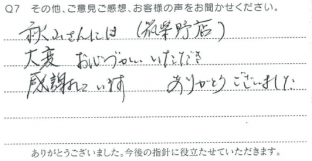 Q7 その他、ご意見ご感想、お客様の声をお聞かせください。
秋山さんには(筑紫野店)
大変 おじづかい いただき
感謝して います ありがとうございました
ありがとうございました。今後の指針に役立たせていただきます。